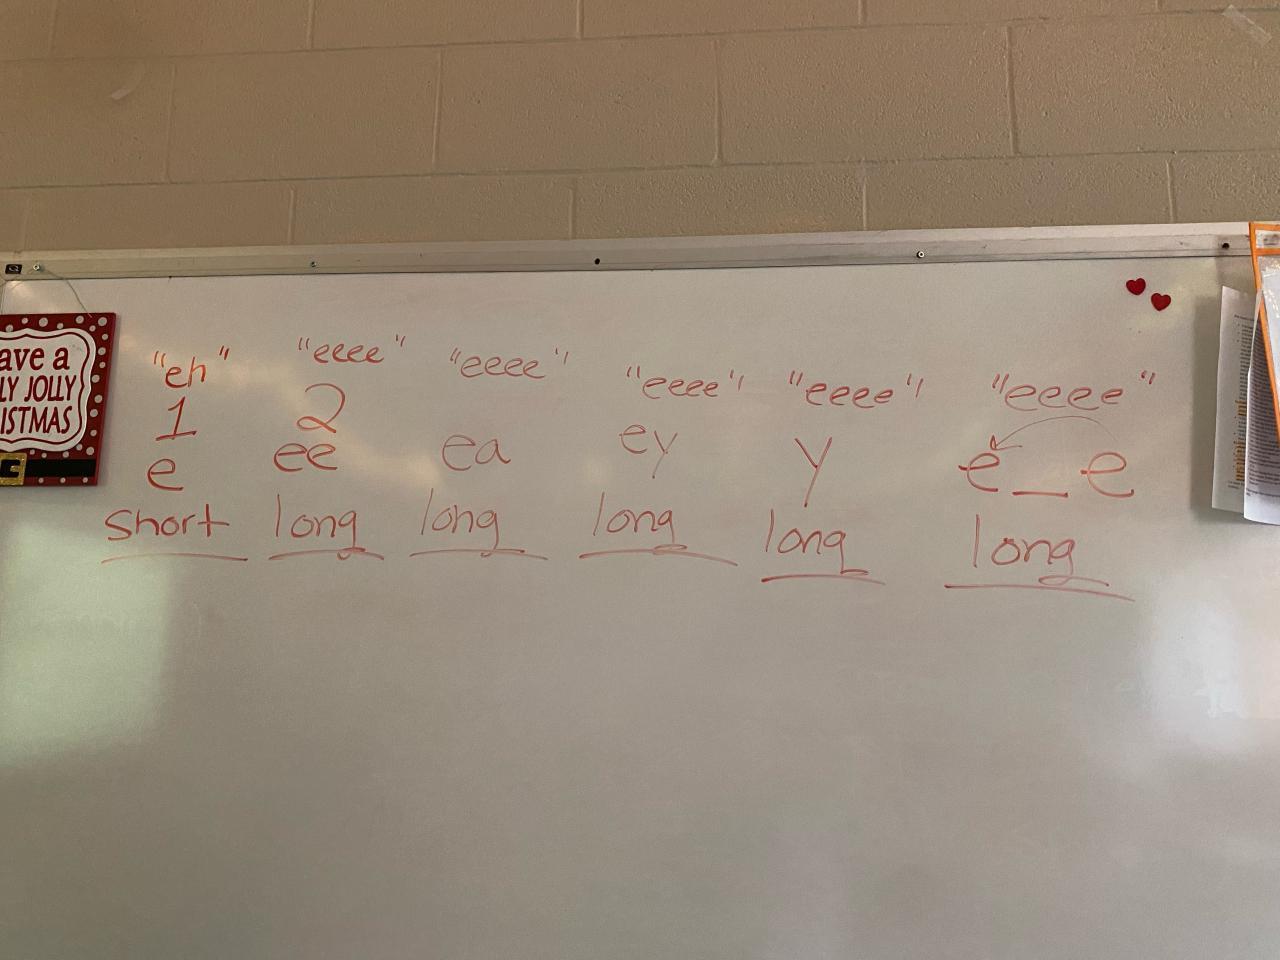 ave a
LY JOLLY
ISTMAS
"eh" "eeee" "eeee" "eeee" "eeee" "eeee"
1 2
e ee ea ey y e_e
short long long long long long